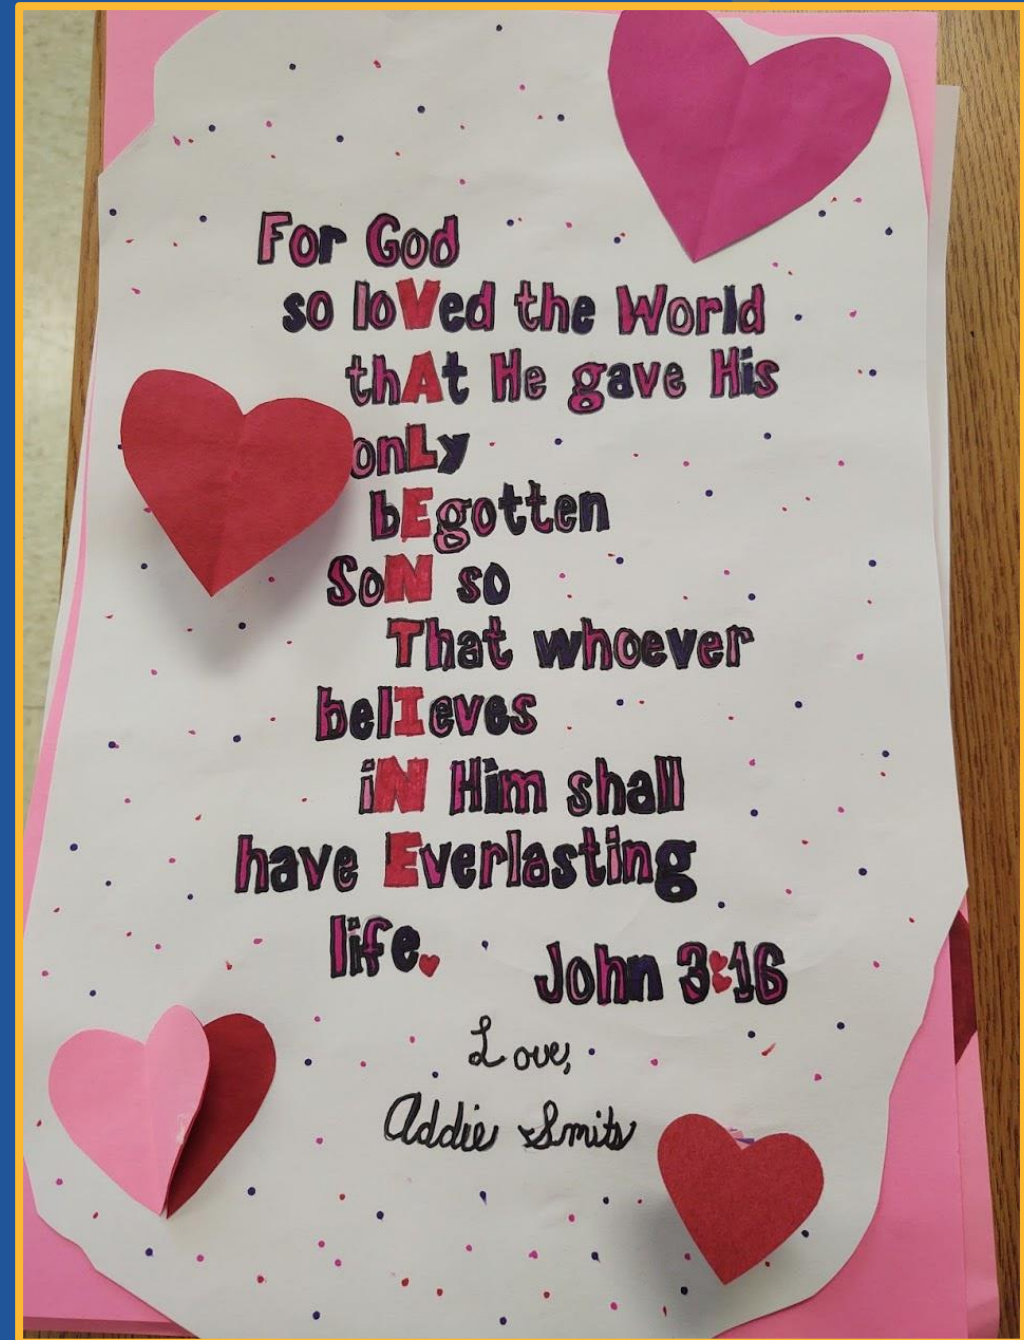 For God
so loVed the World
thAt He gave His
onLy
bEgotten
SoN so
That whoever
belIeves
iN Him shall
have Everlasting
life.
John 3:16
Love,
Addie Smits